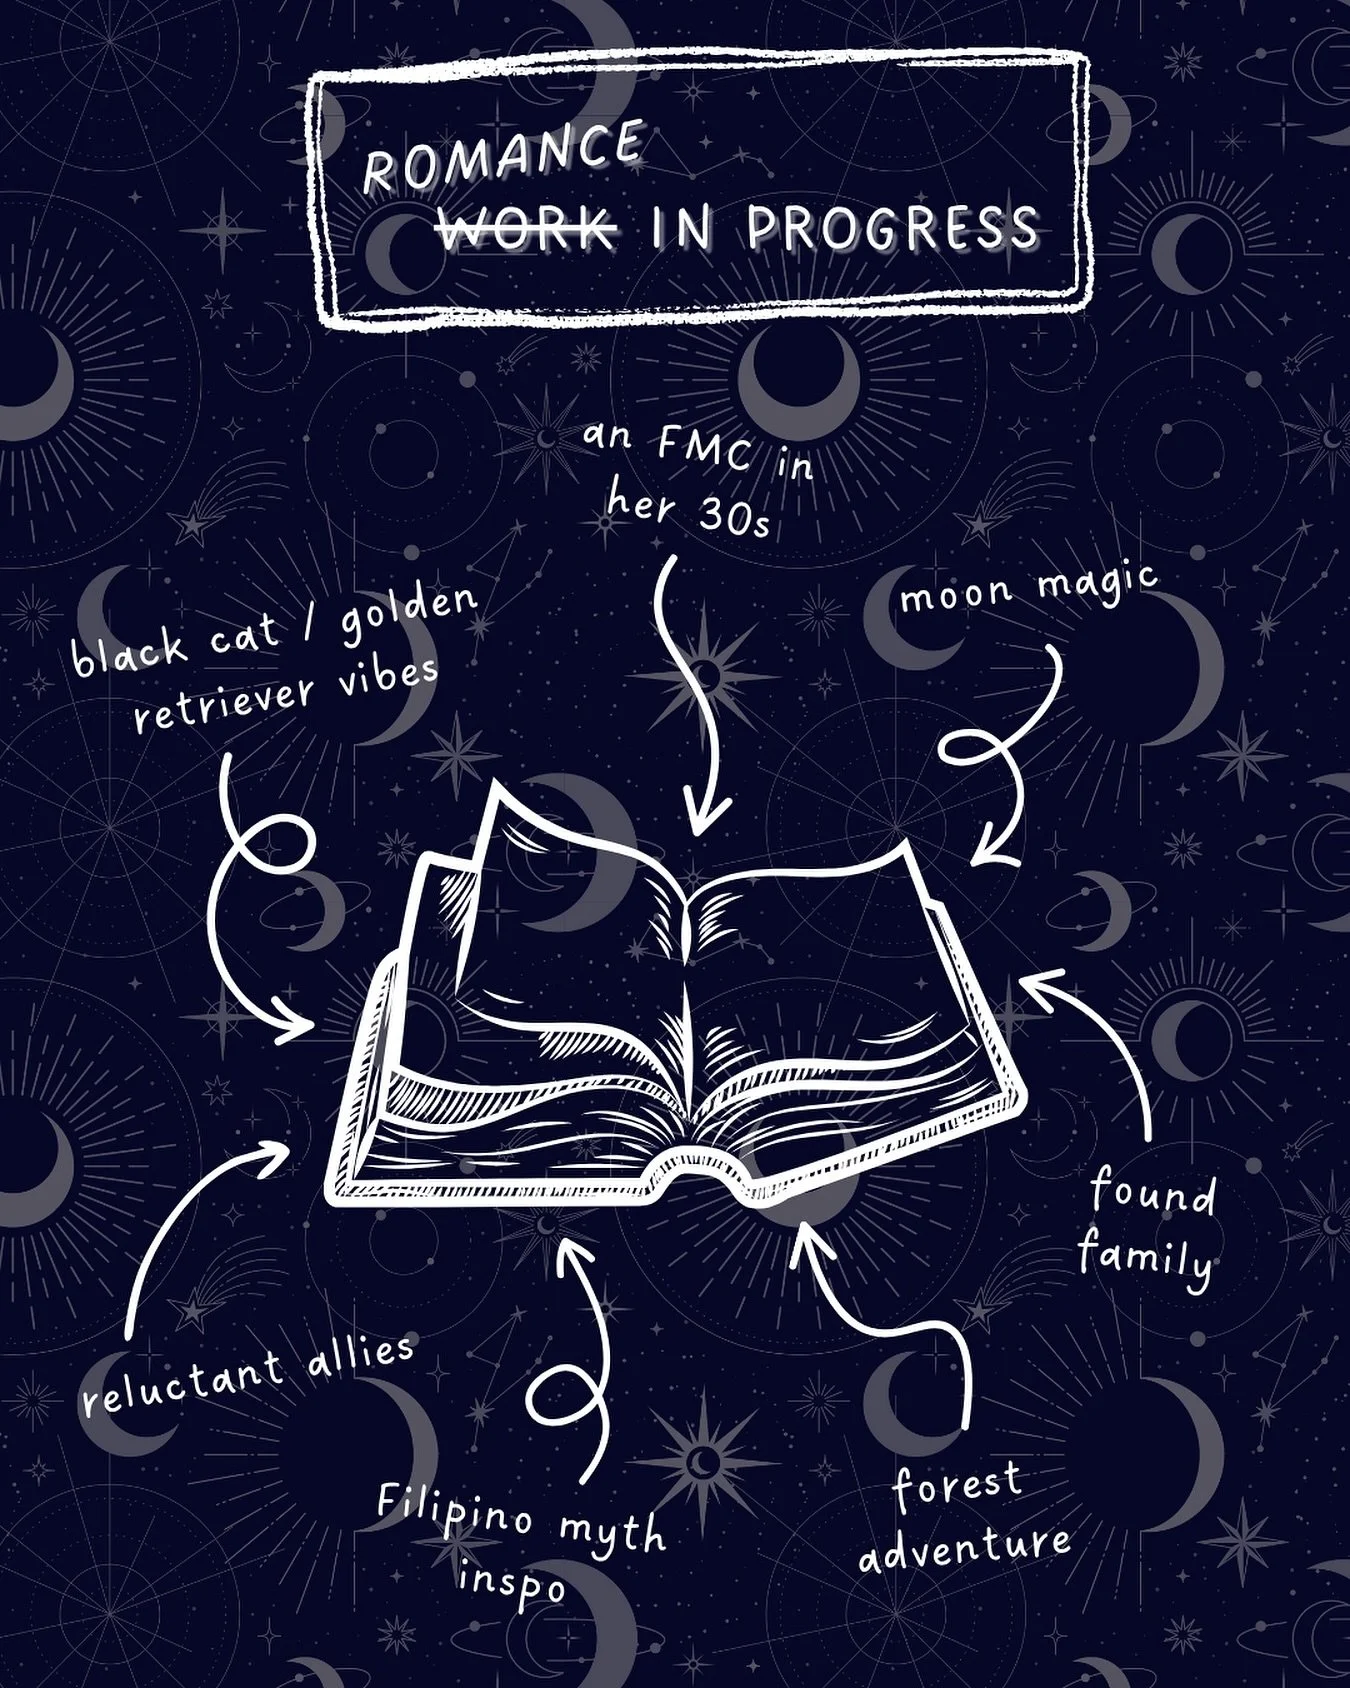 ROMANCE
WORK IN PROGRESS
an FMC in
her 30s
moon magic
black cat / golden
retriever vibes
found
family
reluctant allies
Filipino myth
inspo
forest
adventure